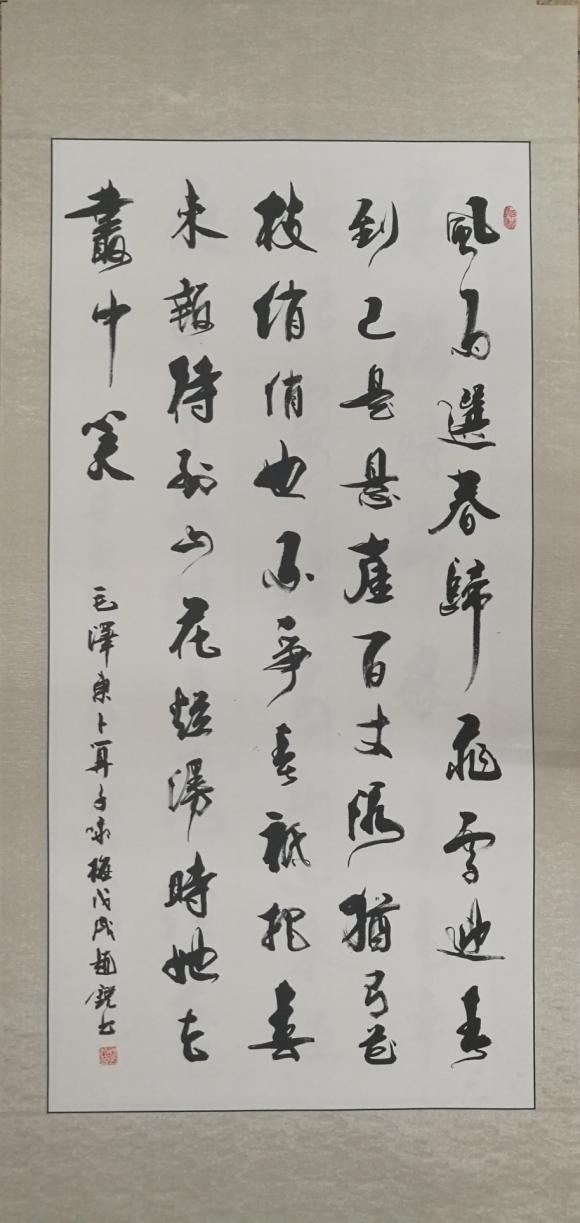 風雨選春歸飛雪迎春
到已是悬崖百丈猶有花
枝俏俏也不爭春祗把春
来報待到山花爛漫時她在
叢中笑
毛澤東卜算子咏梅戊戌趙銳书